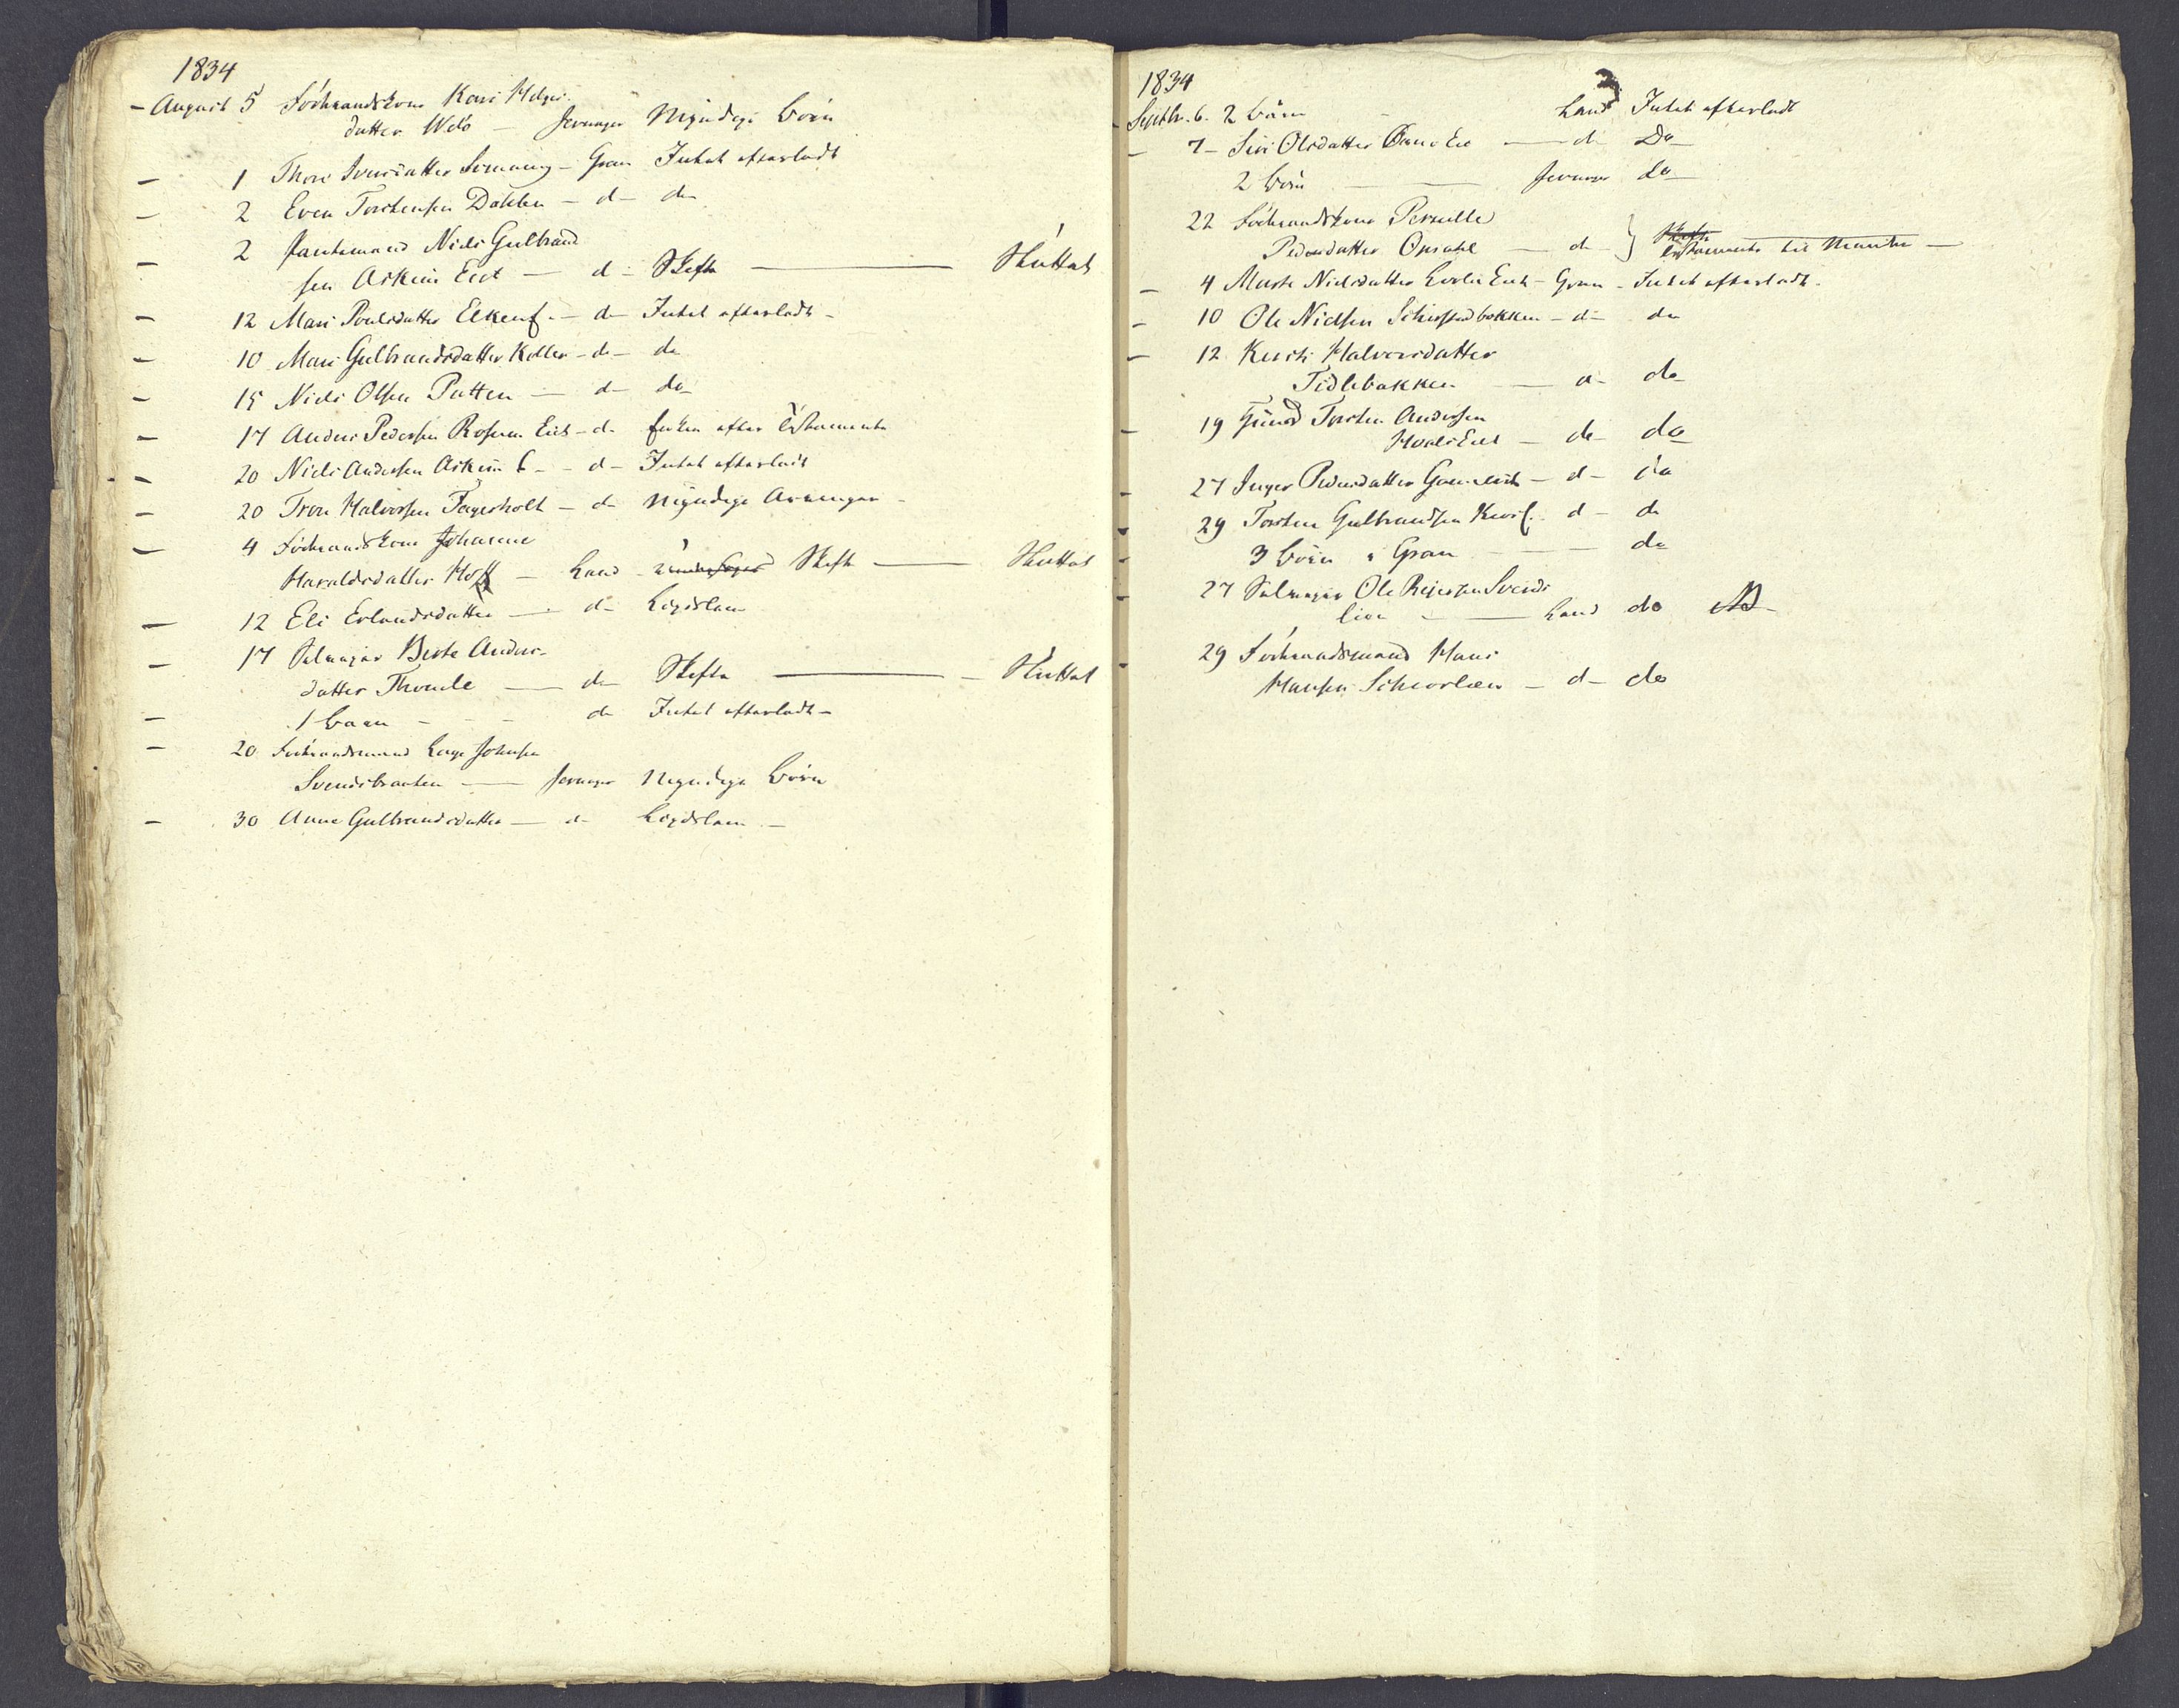 1834
- August 5 Føderaadskone Kari Helges
datter Velo - Jevnager Myndige Børn
- 1 Thore Iversdatter - Gran Intet efterladt
- 2 Even Torstensen Dahlen - d - do
- 2 Pantemand Niels Gulbrand
sen Askim Eiet - d - Skifte - Sluttet
- 12 Mari Poulsdatter - do - Intet efterladt -
- 10 Mari Gulbrandsdatter Koller - do - do
- 15 Niels Olsen Putten - d - do
- 17 Anders Pedersen Rosen Eiet - d - Enken efter Testamente
- 20 Niels Andersen Askim E - d - Intet efterladt
- 20 Tron Halvorsen Fagerholt - do Myndige Arvinger -
- 4 Føderaadskone Johanne
Haraldsdatter Hoff - Land - Skifte - Sluttet
- 12 Eli Erlandsdatter - do Legdslem
- 17 Selveier Berte Anders-
datter Thomle - do Skifte - Sluttet
- 1 Barn - - do Intet efterladt -
- 20 Føderaadsmand Lage Johnsen
Svendsbraaten - Jevnager Myndige Børn
- 30 Anne Gulbrandsdatter - d - Legdslem -
1834
- Septbr. 6. 2 Børn - Land Intet efterladt
- 7 - Siri Olsdatter - d - Do
2 Børn - Jevnager do
22 Føderaadskone Pernille
Pedersdatter Opsahl - do - } Skifte Testamente til Manden -
- 4 Marte Nielsdatter Eiet - Gran - Intet efterladt -
- 10 Ole Nielsen - d - do
- 12 Kersti Halvorsdatter
Tidlebakken - d - do
- 19 Torsten Andersen
Eiet - do - do
- 27 Inger Pedersdatter - d - do
- 29 Torsten Gulbrandsen - d - do
- 3 Børn i Gran - do
- 27 Selveier Ole Reiersen Svends
lien - Land do
- 29 Føderaadsmand Hans
Hansen - d - do